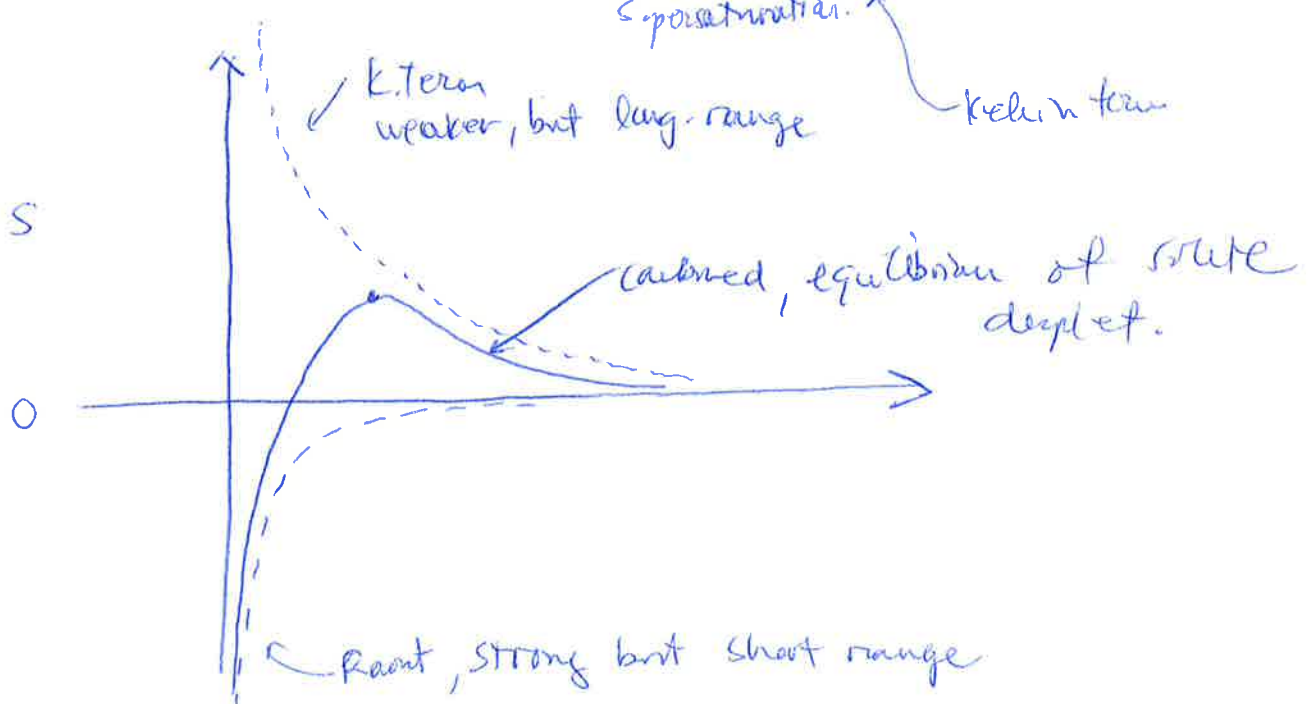 Supersaturation.
K. Term
weaker, but long-range
Kelvin term
S
combined, equilibrium of solute
droplet.
O
Raoult, strong but short range